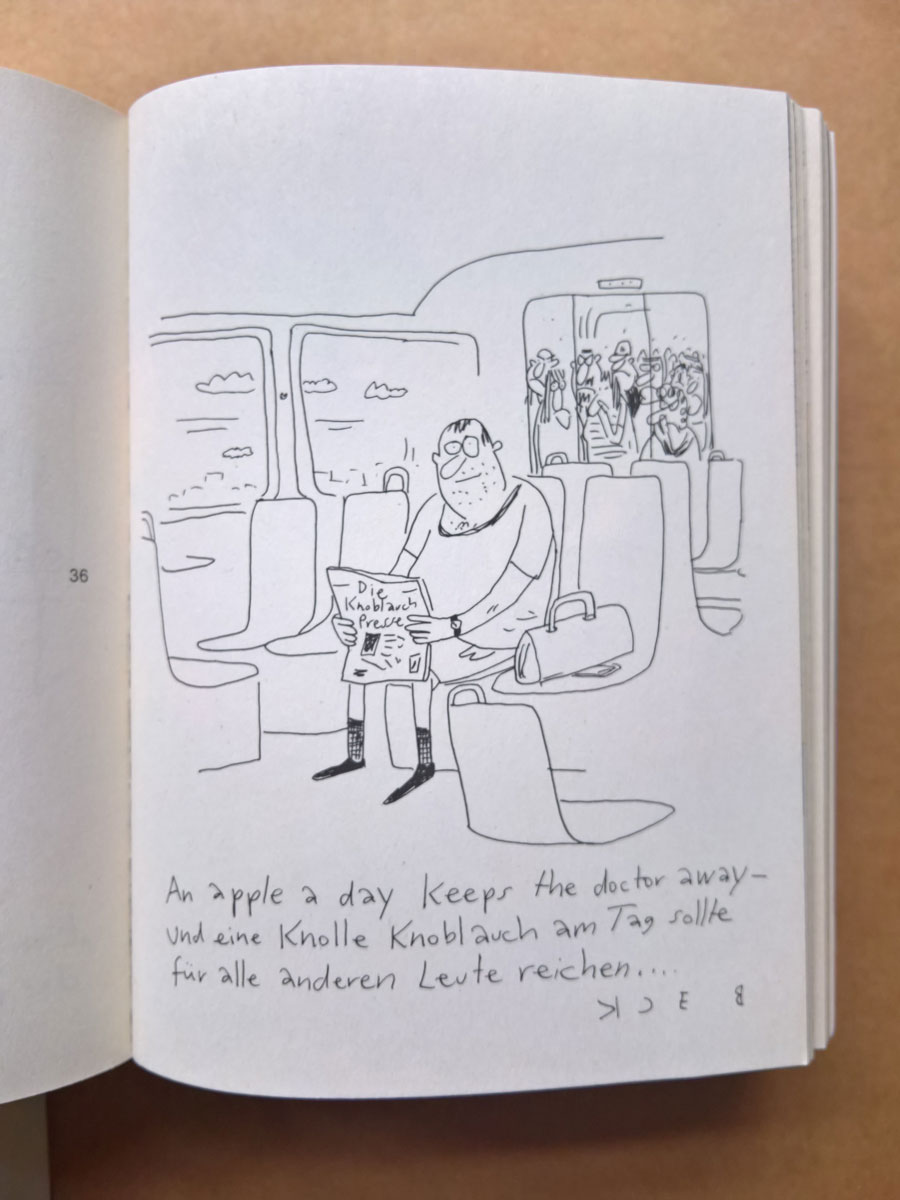 36
Die
Knoblauch
Presse
An apple a day keeps the doctor away—
und eine Knolle Knoblauch am Tag sollte
für alle anderen Leute reichen....
BECK